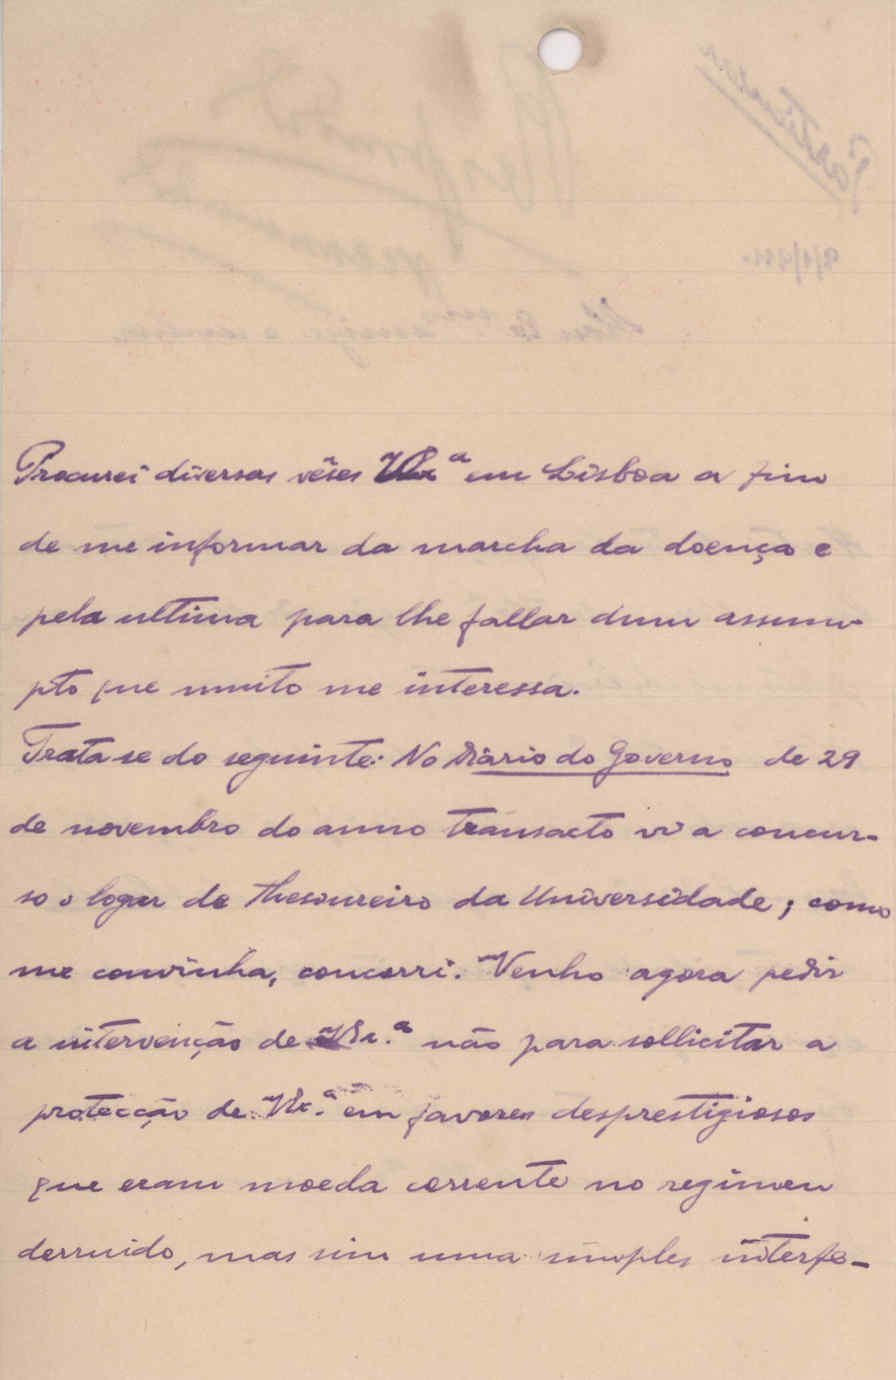 Procurei diversas vêses V. Ex.ª em Lisboa a fim
de me informar da marcha da doença e
pela ultima para lhe fallar dum assum-
pto que muito me interessa.
Trata-se do seguinte: No Diàrio do Governo de 29
de novembro do anno transacto vi a concur-
so o logar de thesoureiro da Universidade; como
me convinha, concorri. Venho agora pedir
a intervenção de V. Ex.ª não para sollicitar a
protecção de V. Ex.ª em favores desprestigiosos
que eram moeda corrente no regimen
derruido, mas sim uma simples interfe-